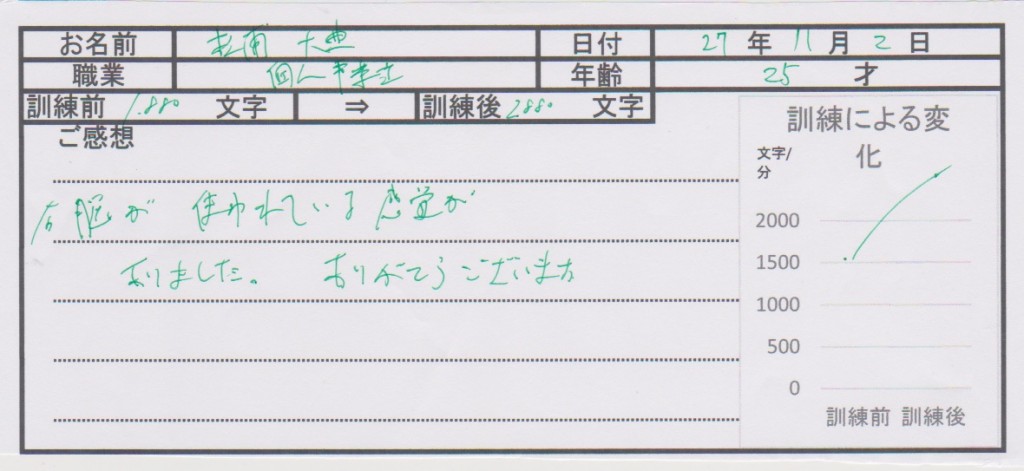 お名前 松浦 大典 日付 27年11月2日
職業 個人事業主 年齢 25才
訓練前 1880 文字 ⇒ 訓練後 2880 文字
ご感想
右脳が 使われている感覚が
ありました。 ありがとうございます
訓練による変
化
文字/
分
2000
1500
1000
500
0
訓練前 訓練後